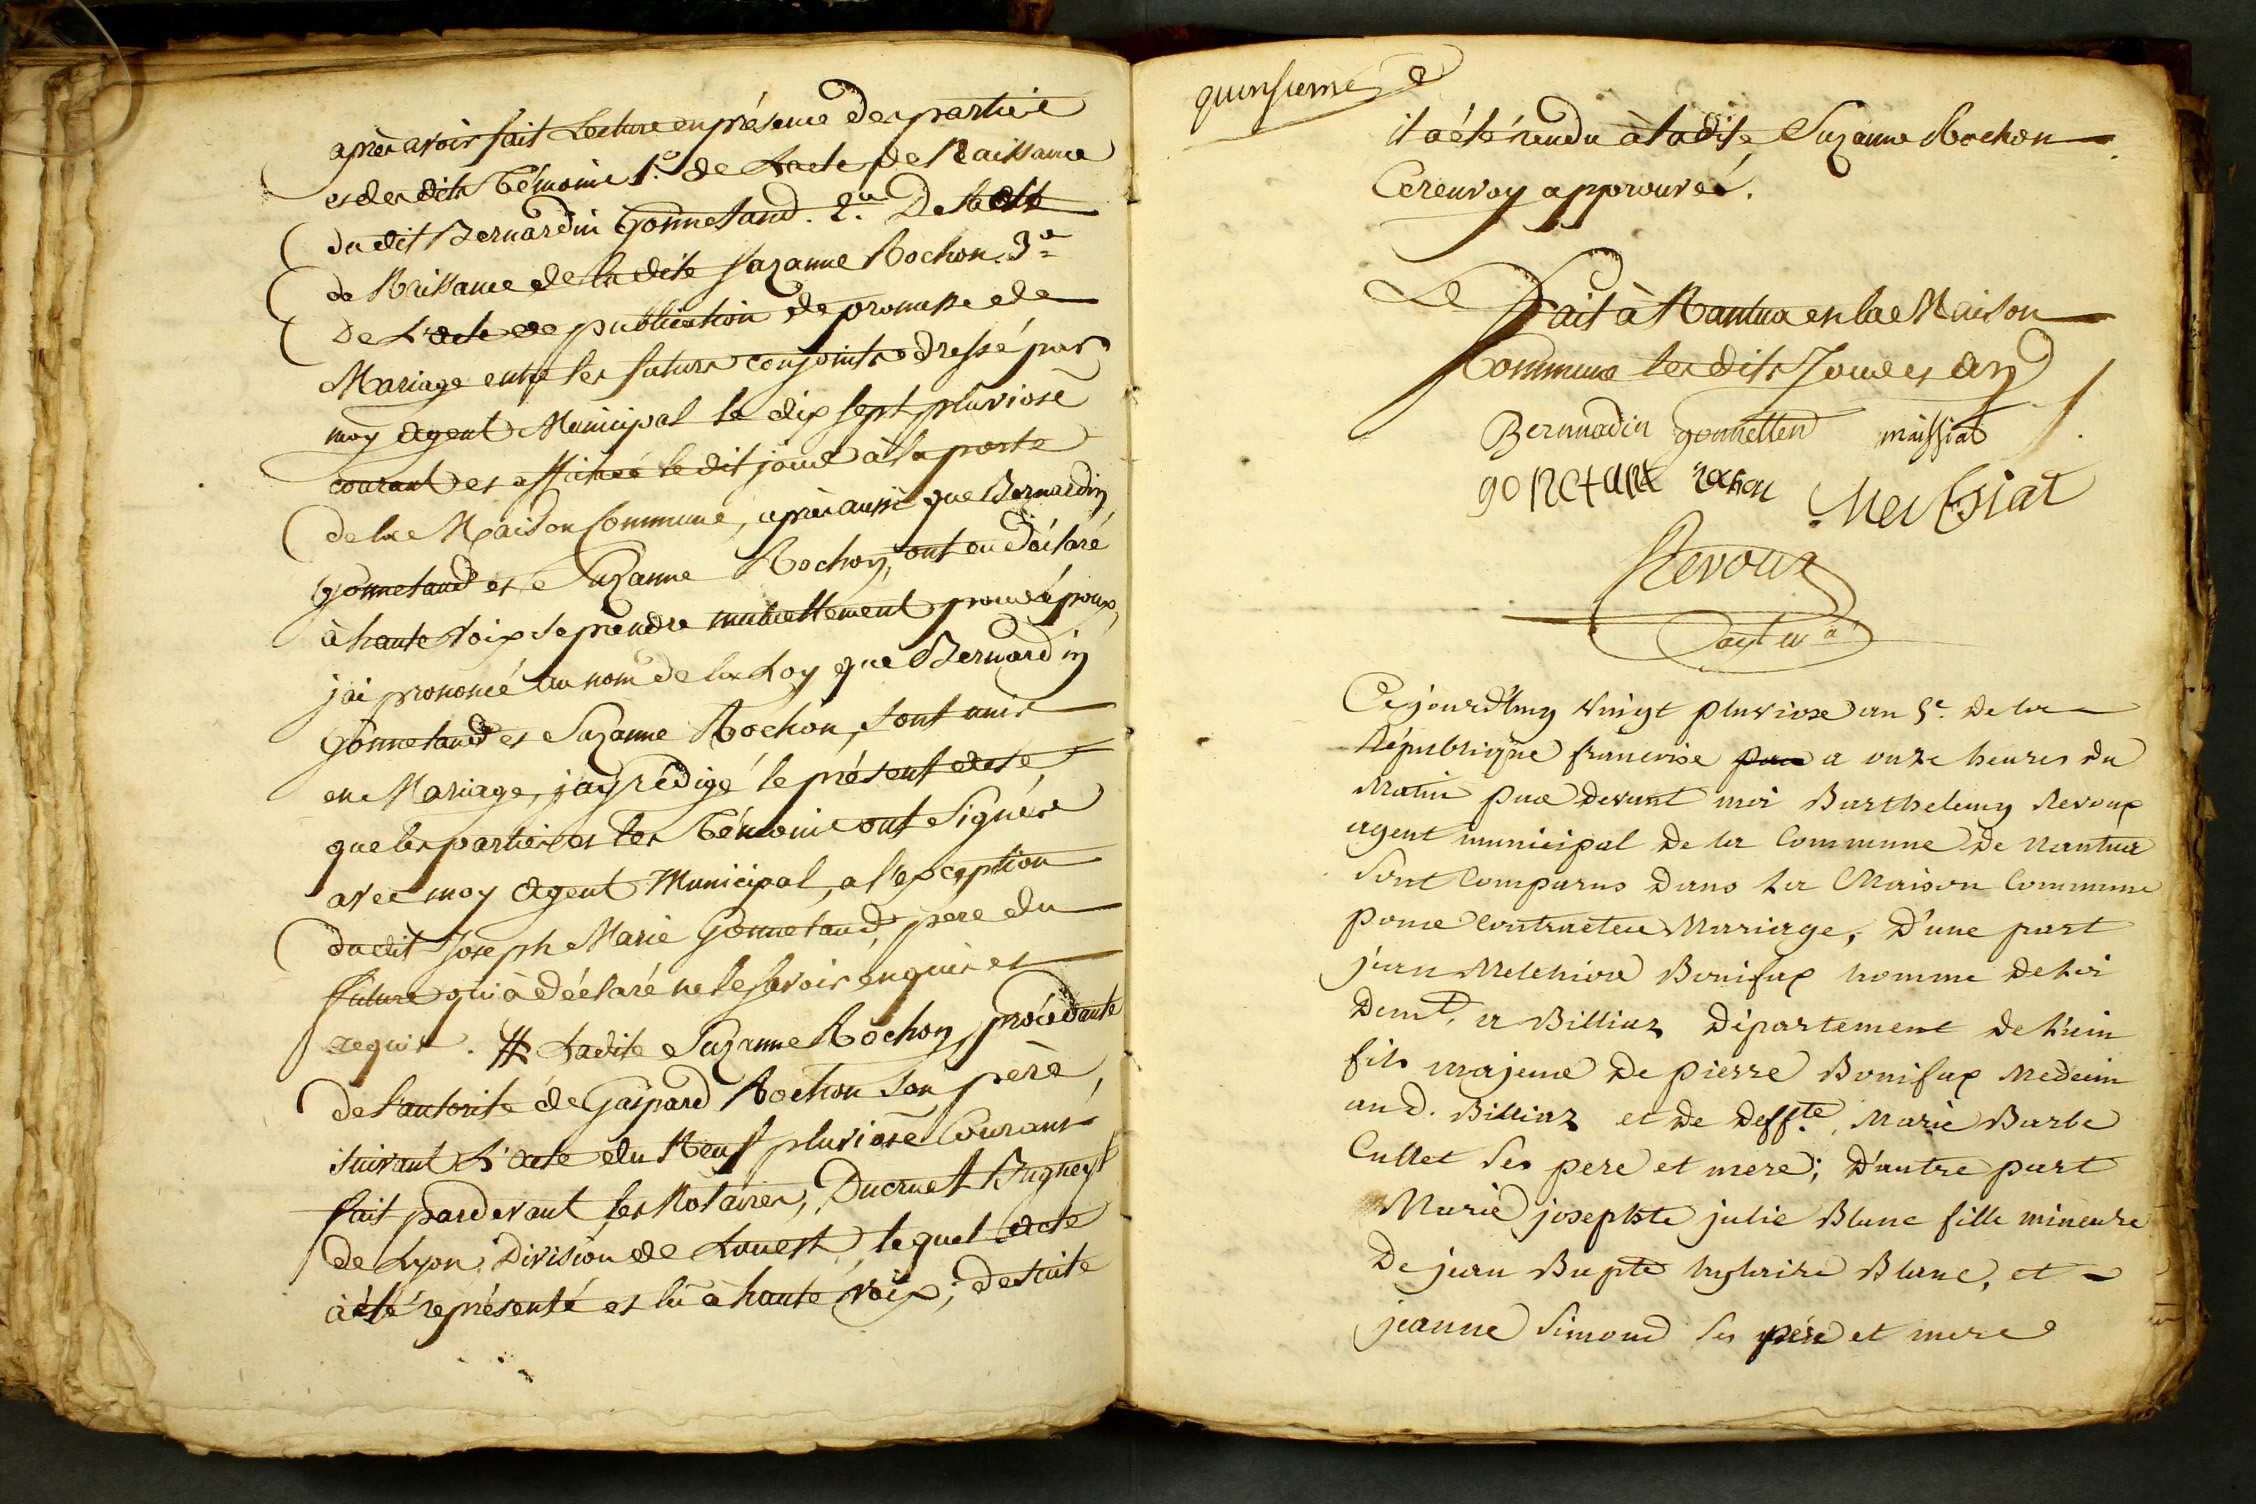 après avoir fait Lecture en présence des parties
et des dits témoins 1.° de L'acte de Naissance
du dit Bernardin Gonnetand. 2.° De L'acte
de Naissance de la dite Suzanne Rochon. 3.°
De L'acte de publication de promesse de
Mariage entre les futurs conjoints dressé par
moy agent Municipal le dix sept pluviose
courant et affichée le dit jour à la porte
de la Maison Commune, après aussi que Bernardin
Gonnetand et Suzanne Rochon, ont eu déclaré
à haute voix se prendre mutuellement pour époux,
j'ai prononcé au nom de la Loy que Bernardin
Gonnetand et Suzanne Rochon, sont unis
en Mariage, j'ay rédigé le présent acte
que les parties et les témoins ont signés
avec moy agent Municipal, a l'exception
du dit Joseph Marie Gonnetand pere du
futur qui à déclaré ne le savoir enquis et
requis. # Ladite Suzanne Rochon, procédante
de l'autorité de Gaspard Rochon son père,
suivant L'acte du Neuf pluviose Courant
fait pardevant les Notaires, Ducruet Bugneyt
de Lyon, Division de Louest, lequel acte
à été représenté et lu à haute voix; de suite
quinsieme
il a été rendu à ladite Suzanne Rochon
Ce renvoy approuvée.
Fait à Nantua en la Maison
Commune les dits Jour et an
Bernnadin gonnetten maissiat
gonetant rochon Messiat
Revoux
agt m.al
Ce jourd'huy vingt pluviose an 5.e de la
République francoise a onze heures du
Matin par devant moi Barthelemy Revoux
agent municipal de la Commune de nantua
Sont Comparus dans La Maison Commune
pour contracter Mariage, D'une part
jean Melchior Bonifax homme de loi
demt. a Billiaz Département de L'ain
fils majeur De pierre Bonifax Medecin
au d. Billiaz et de deffte. Marie Barbe
Cullet Ses pere et mere; D'autre part
Marie josephte julie Blanc fille mineure
De jean Bapte hylaire Blanc, et
jeanne Simond Ses pére et mere